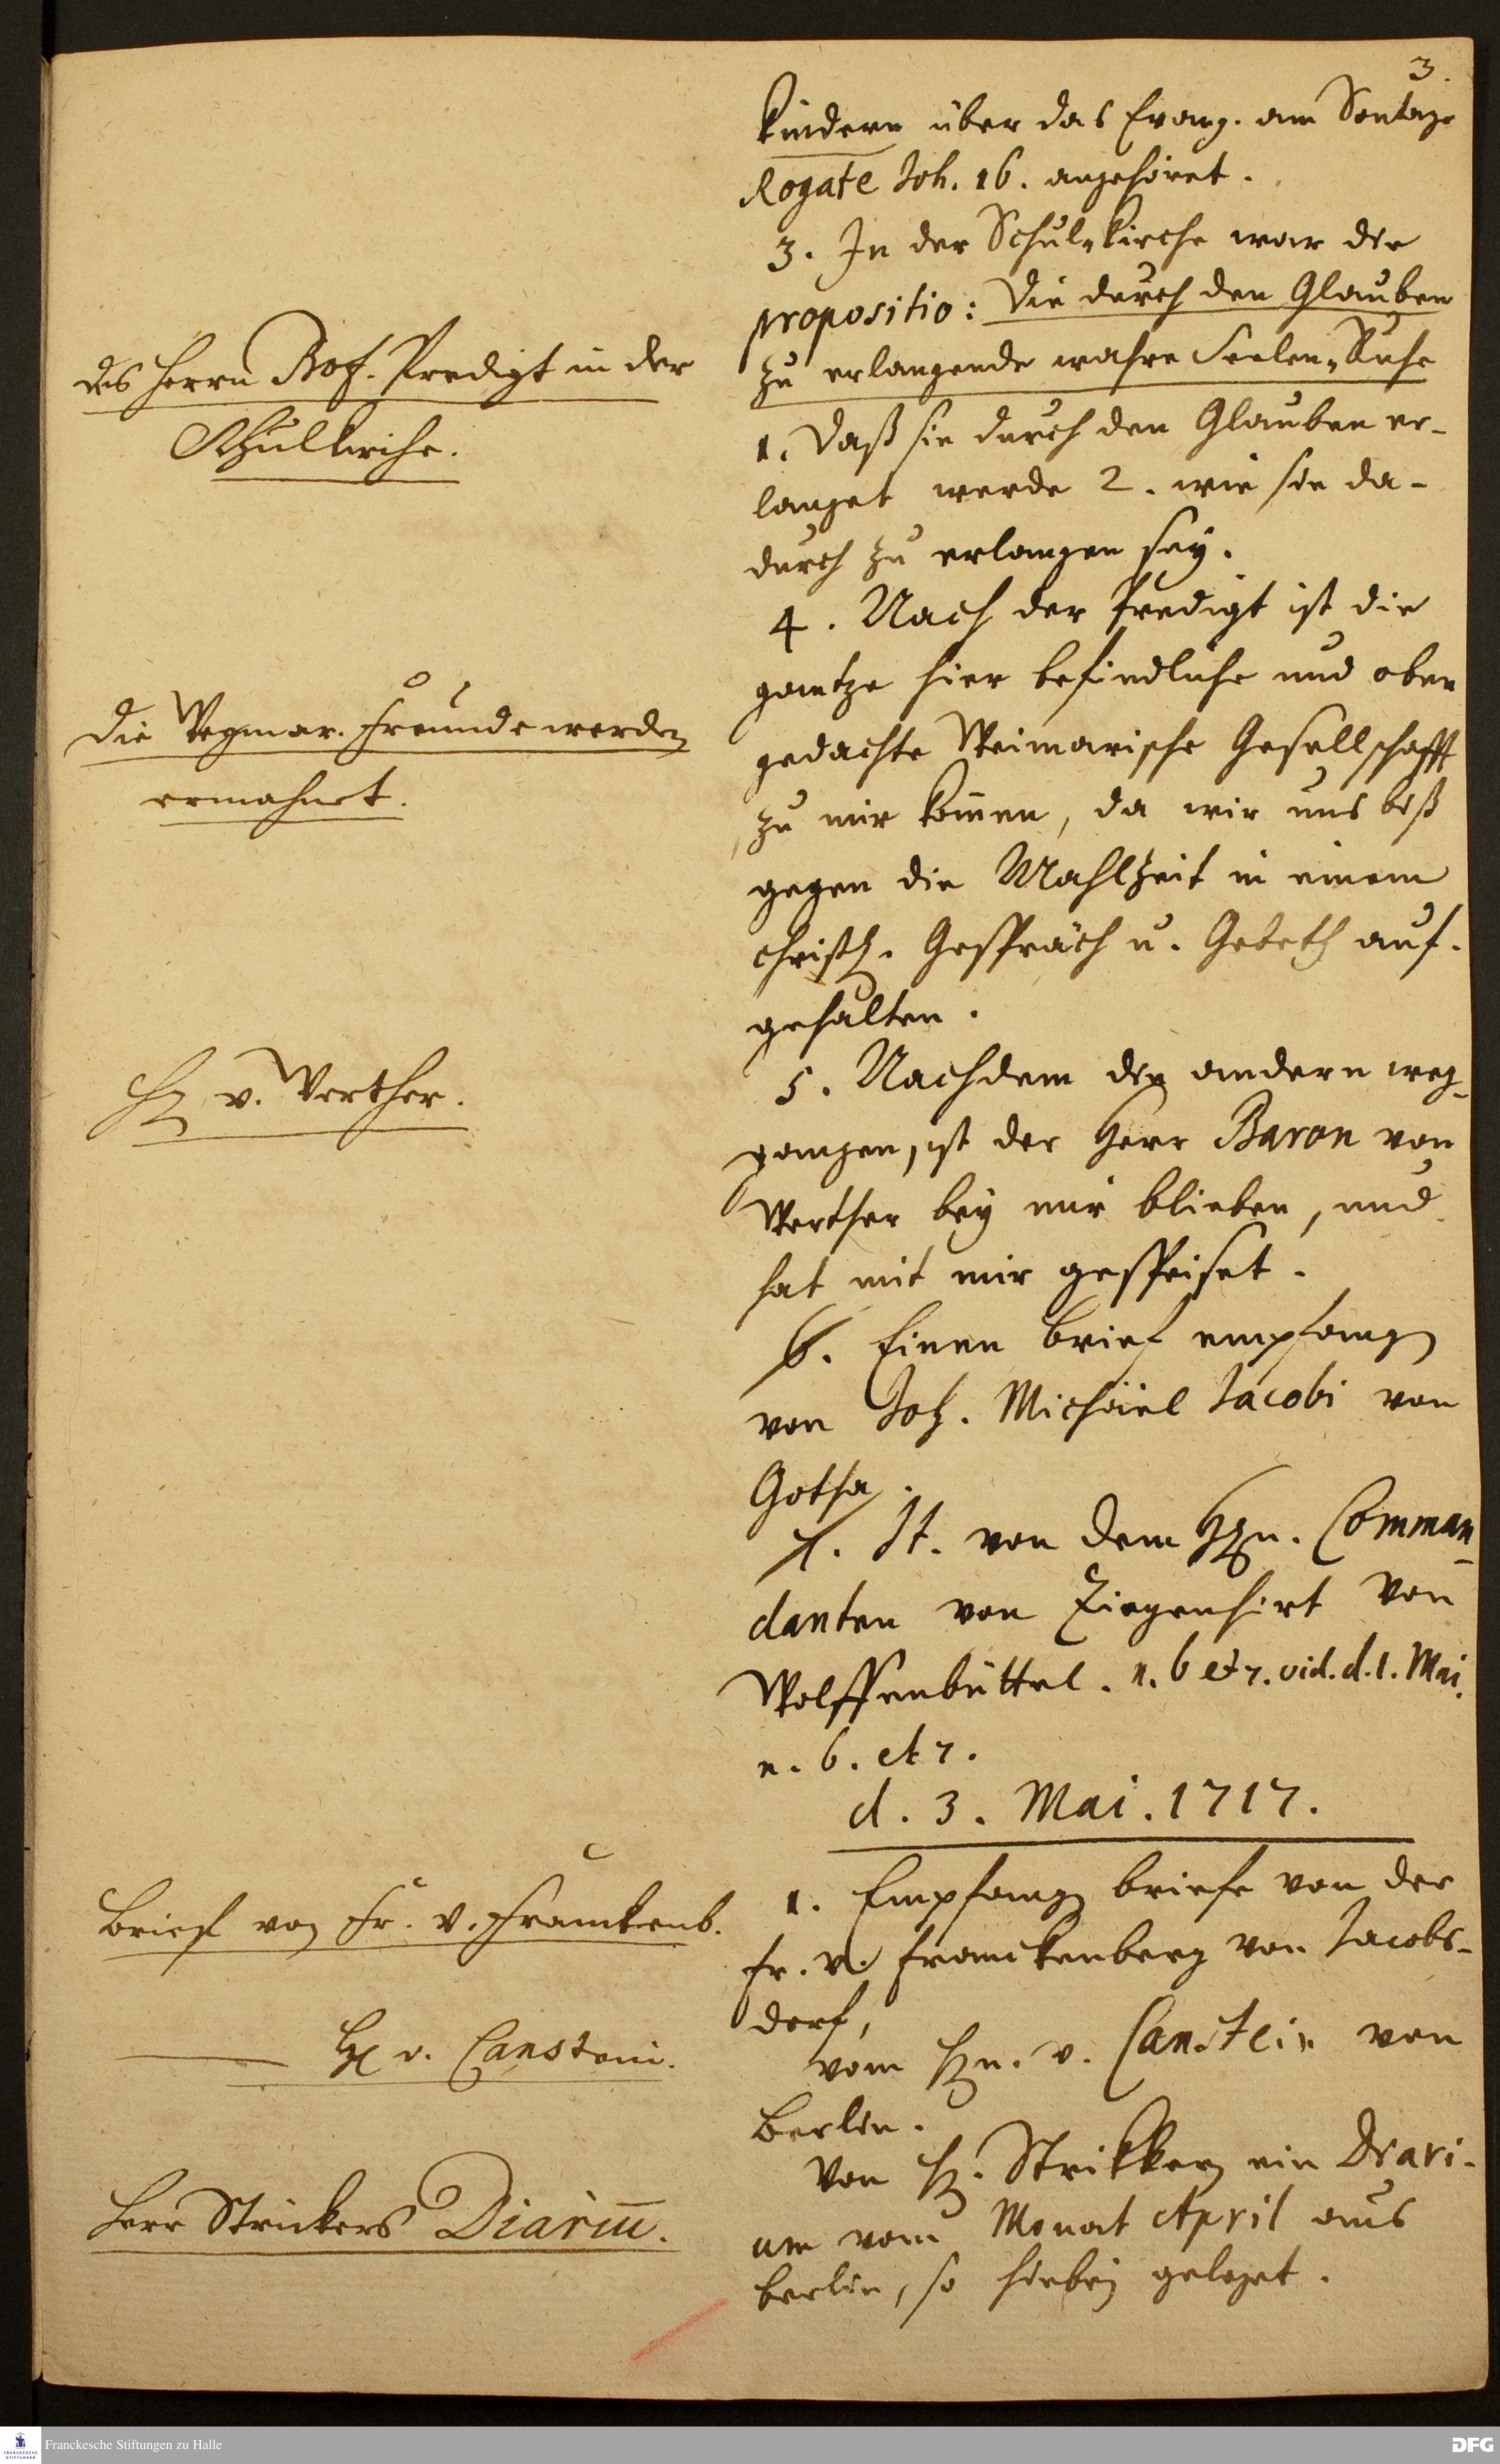 3.
Kindern über das Evang. am Sontage
Rogate Joh. 16. angehöret.
3. In der Schul-Kirche war die
propositio: Die durch den Glauben
zu erlangende wahre Seelen-Ruhe
1. Daß sie durch den Glauben er-
langet werde 2. wie sie da-
durch zu erlangen sey.
4. Nach der Predigt ist die
gantze hier befindliche und oben
gedachte Weimarische Gesellschafft
zu mir kom̄en, da wir uns biß
gegen die Mahlzeit in einem
christl. Gespräch u. Gebeth auf-
gehalten.
5. Nachdem die andern weg-
gangen, ist der Herr Baron von
Werther bey mir blieben, und
hat mit mir gespeiset.
6. Einen brief empfangen
von Joh. Michäel Jacobi von
Gotha.
7. It. von dem Hrn. Comman-
danten von Ziegenhirt von
Wolffenbüttel. n. 6 et 7. vid. d. 1. Mai.
n. 6. et 7.
d. 3. Mai. 1717.
1. Empfangen briefe von der
Fr. v. Franckenberg von Jacobs-
dorf,
vom Hrn. v. Canstein von
Berlin.
Von H. Strikker ein Diari-
um vom Monat April aus
berlin, so hiebey geleget.
des Herrn Prof. Predigt in der
Schulkirche.
Die Weymar. Freunde werden
ermahnet.
H. v. Werther.
Brief von Fr. v. Franckenb.
H. v. Canstein.
Herr Strickers Diariū.
Franckesche Stiftungen zu Halle
DFG